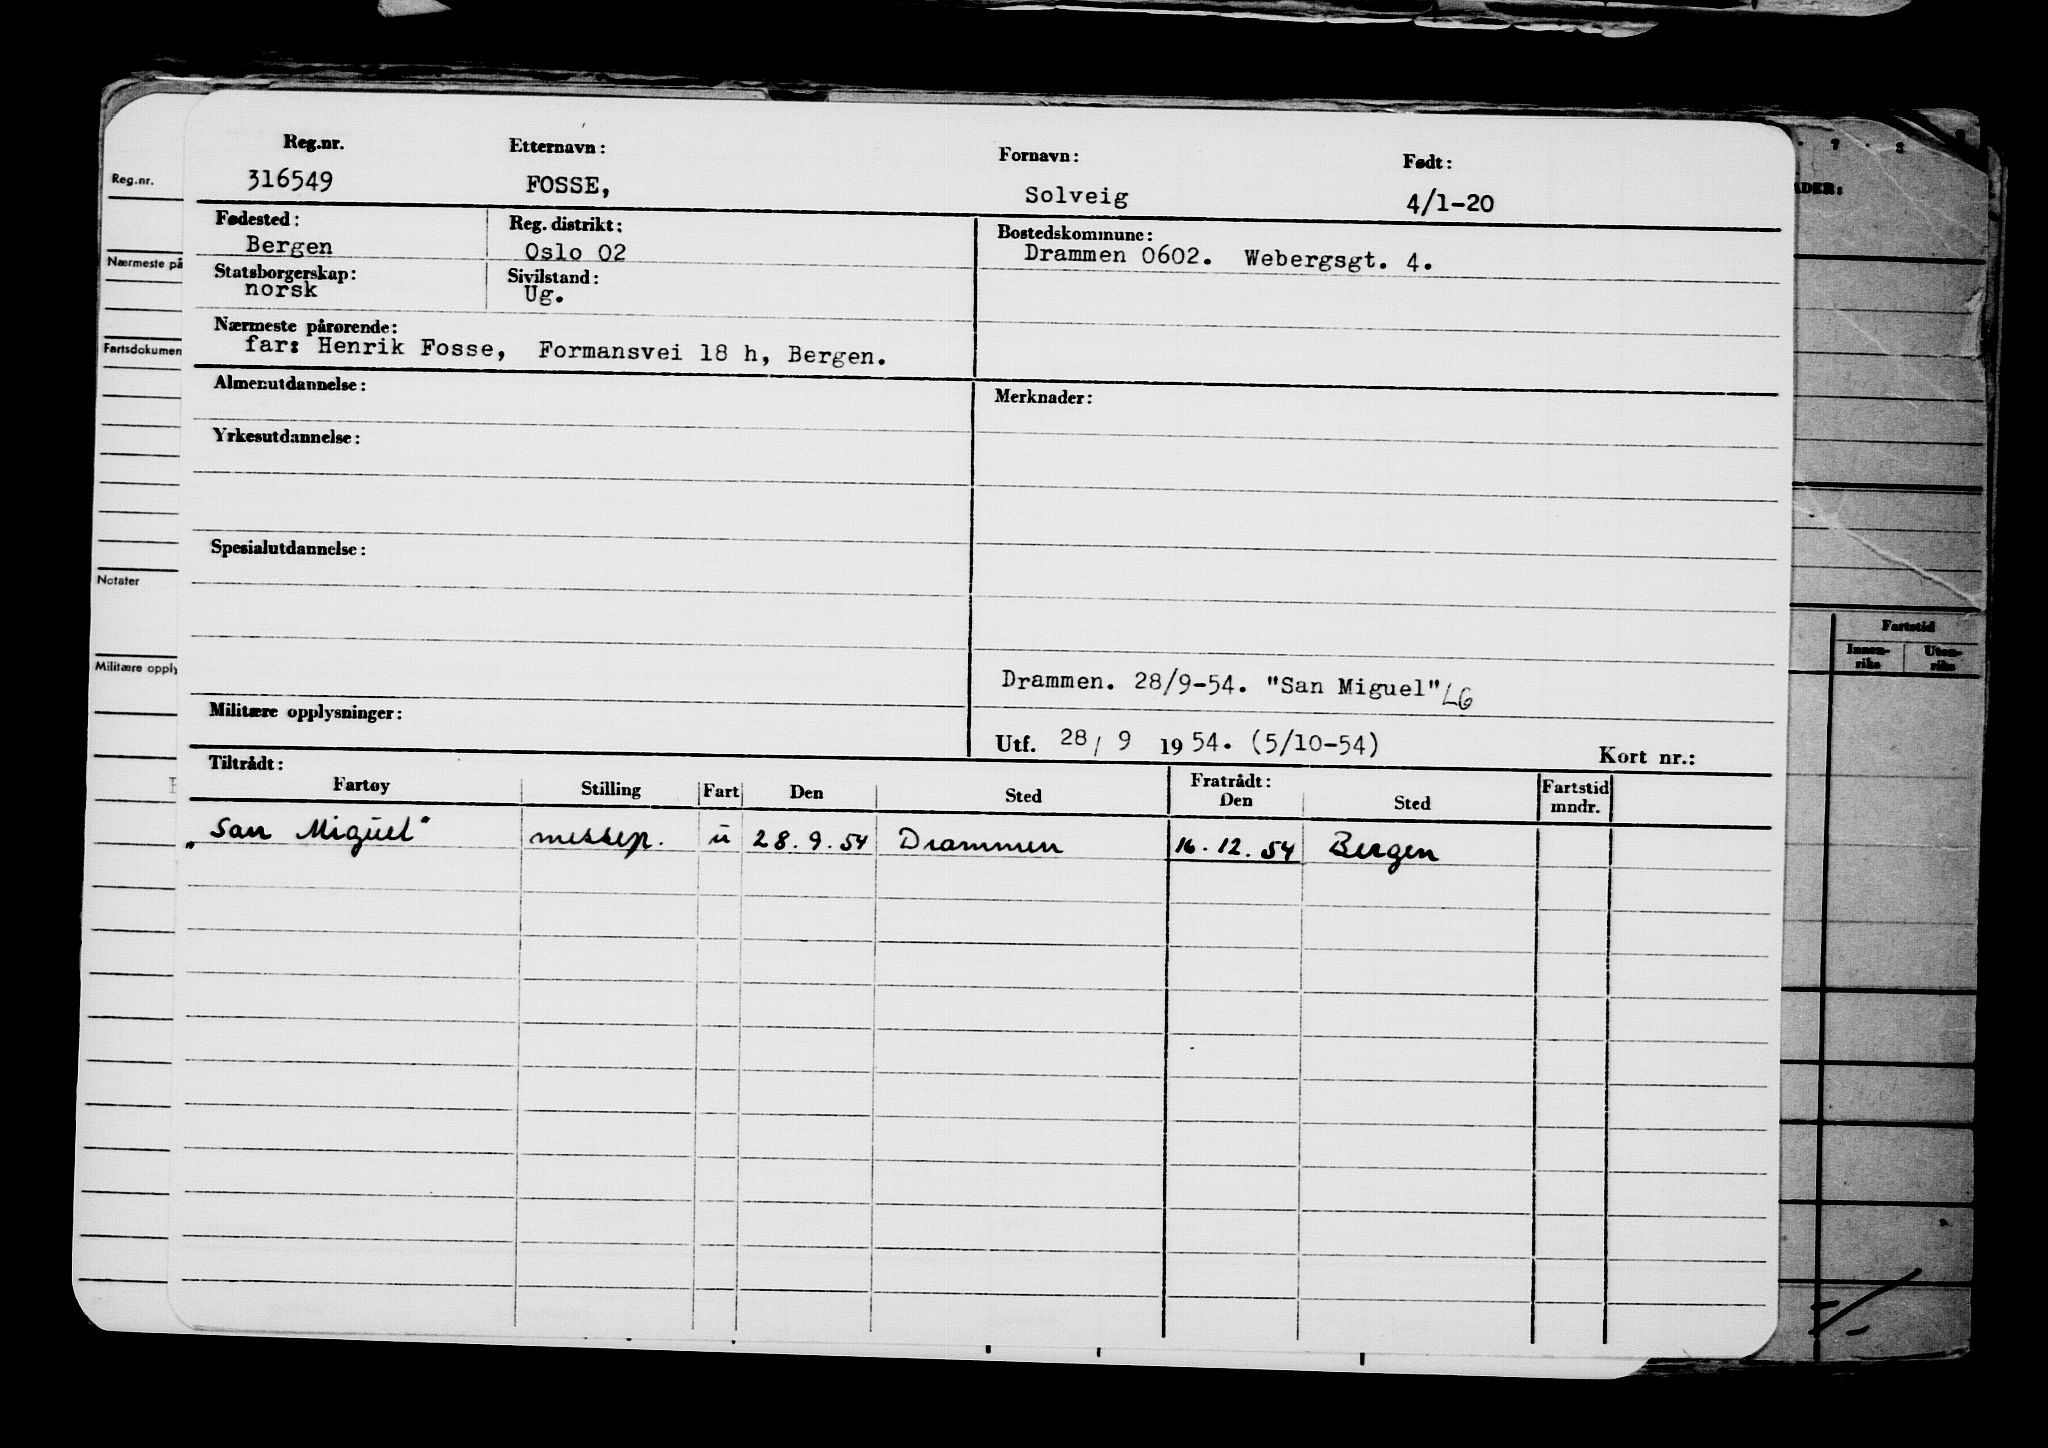 Reg.nr. Etternavn: Fornavn: Født:
316549 FOSSE, Solveig 4/1-20
Fødested: Reg. distrikt: Bostedskommune:
Bergen Oslo 02 Drammen 0602. Webergsgt. 4.
Statsborgerskap: Sivilstand:
norsk Ug.
Nærmeste pårørende:
far: Henrik Fosse, Formansvei 18 h, Bergen.
Almenutdannelse: Merknader:
Yrkesutdannelse:
Spesialutdannelse:
Drammen. 28/9-54. "San Miguel" LG
Militære opplysninger:
Utf. 28/ 9 1954. (5/10-54) Kort nr.:
Tiltrådt: Fratrådt:
Fartøy Stilling Fart Den Sted Den Sted Fartstid mndr.
„San Miguel" messep. u 28.9.54 Drammen 16.12.54 Bergen
Reg.nr.
Nærmeste på
Fartsdokumen
Notater
Militære opply
ADER:
Fartstid
Innen-riks Uten-riks